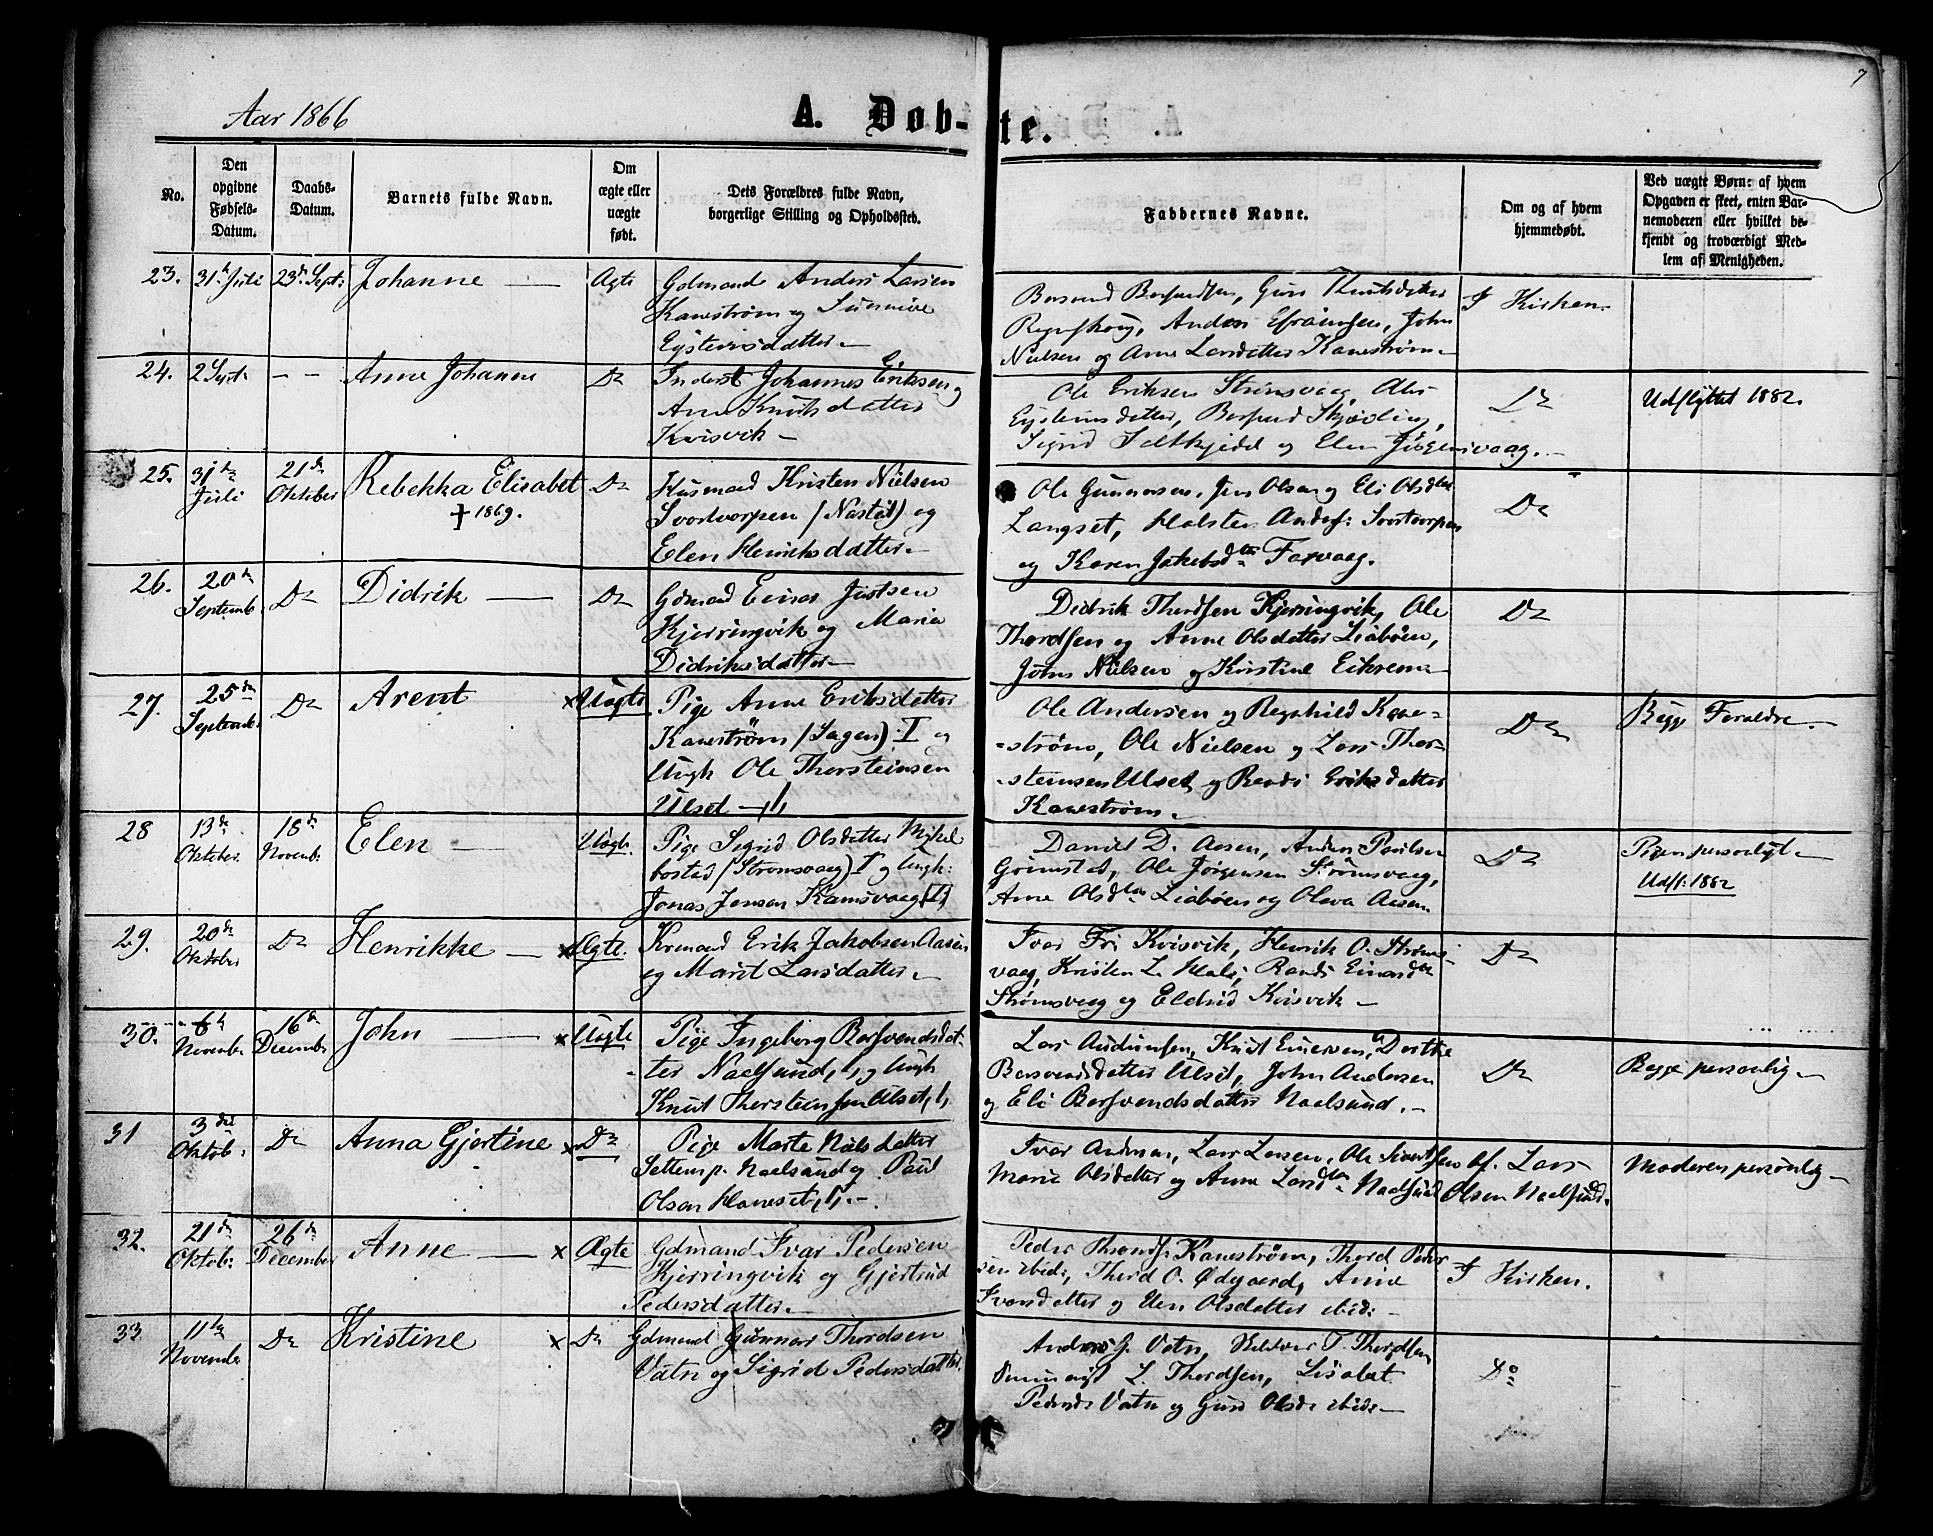 7
Aar 1866
A. Døb-te.
No.
Den opgivne Fødsels-Datum.
Daabs-Datum.
Barnets fulde Navn.
Om ægte eller uægte født.
Dets Forældres fulde Navn, borgerlige Stilling og Opholdssted.
Faddernes Navne.
Om og af hvem hjemmedøbt.
Ved uægte Børn: af hvem Opgaven er skeet, enten Barnemoderen eller hvilket bekjendt og troværdigt Medlem af Menigheden.
23. 31te Juli 23de Sept: Johanne — Ægte
Gdmand Anders Larsen
Kanestrøm og Sunnive
Eysteinsdatter –
Guri Knutsdatter
Anders Efraimsen, John
Nielsen og Ane Larsdatter Kanestrøm –
I Kirken.
24. 2 Sept. – – Anne Johanne Do
Inderst Johannes Eriksen og
Ane Knutsdatter
Kvisvik –
Ole Eriksen Strømsvaag,
Eysteinsdatter,
Sigrid og Elen
Do
Udflyttet 1882.
25. 31te Juli 21de Oktober Rebekka Elisabet Do
† 1869.
Husmand Kristen Nielsen
Svortvorpen (Nastøl) og
Elen Henriksdatter –
Ole Gunnarsen, Jens Olsen og Eli Olsdter
Langset, Halsten Anders: Svortvorpen
og Karen Jakobsdter Farvaag.
Do
26. 20de Septemb. Do Didrik — Do
Gdmand Einar Justsen
Kjerringvik og Maria
Didriksdatter –
Didrik Thordsen Kjerringvik, Ole
Thordsen og Anne Olsdatter Liabøen,
John Nielsen og Kristine Eikrem –
Do
27. 25de Septemb. Do Arent × Uægte
Pige Anne Eriksdatter
Kanestrøm (Hagen) : I og
Ungk Ole Thorsteinsen
Ulset –
Ole Andersen og Ragnhild Kane-
-strøm, Ole Nielsen og Lars Thor-
-steinsen Ulset og Beret Eriksdatter
Kanestrøm –
Do
Begge Foræld­re –
28 13de Oktober 18de Novemb: Elen — Uægte
Pige Sigrid Olsdatter Mykel
bostad (Strømsvaag) I og Ungk:
Jonas Jensen Ramsvaag
Daniel D. Aasen, Anders Paulsen
Grimstad, Ole Jørgensen Strømsvaag,
Ane Olsdter Liabøen og Olava Aasen.
Do
Pigen personligt –
Udfl: 1882
29. 20de Oktober Do Henrikke — × Ægte.
Krmand Erik Jakobsen Aasen
og Marit Larsdatter –
Ivar Fri Kvisvik, Henrik O. Strøms-
vaag, Kristen L. Hals, Randi Einarsdter
Strømsvaag og Eldrid Kvisvik –
Do
30. 6te Novembr 16de Decembr John — × Uægte
Pige Ingeborg Bersvendsdat-
-ter Naelsund, og Ungk
Knut Thorsteinsen Ulset
Lars Audunsen, Knut Dorthe
Bersvendsdatter Ulset, John Andersen
og Eli Bersvendsdatter Naelsund. –
Do
Begge personlig –
31 3die Oktob. Do Anna Gjertine × Do
Pige Marte Nielsdatter
Naelsund og Paul
Olsen Haneset –
Ivar Lars Larsen, Ole Sivertsen
Marie Olsdatter og Anne Larsdter Naelsund
Af Lars
Olsen Naelsund.
Moderen personlig –
32. 21de Oktob: 26de December Anne — × Ægte
Gdmand Ivar Pedersen
Kjerringvik og Gjertrud
Pedersdatter –
Peder Kanestrøm, Thord Peder-
sen ibid:, Thord O. Ødgaard, Anne
Ivarsdatter og Elen Olsdatter ibid: –
I Kirken.
33 11te November Do Kristine × Do
Gdmand Gunnar Thordsen
Vatn og Sigrid Pedersdatter.
Anders G. Vatn, T. Thordsen,
L. Thordsen, Lisabet
Pedersdr Vatn og Guri Olsdr ibid: –
Do